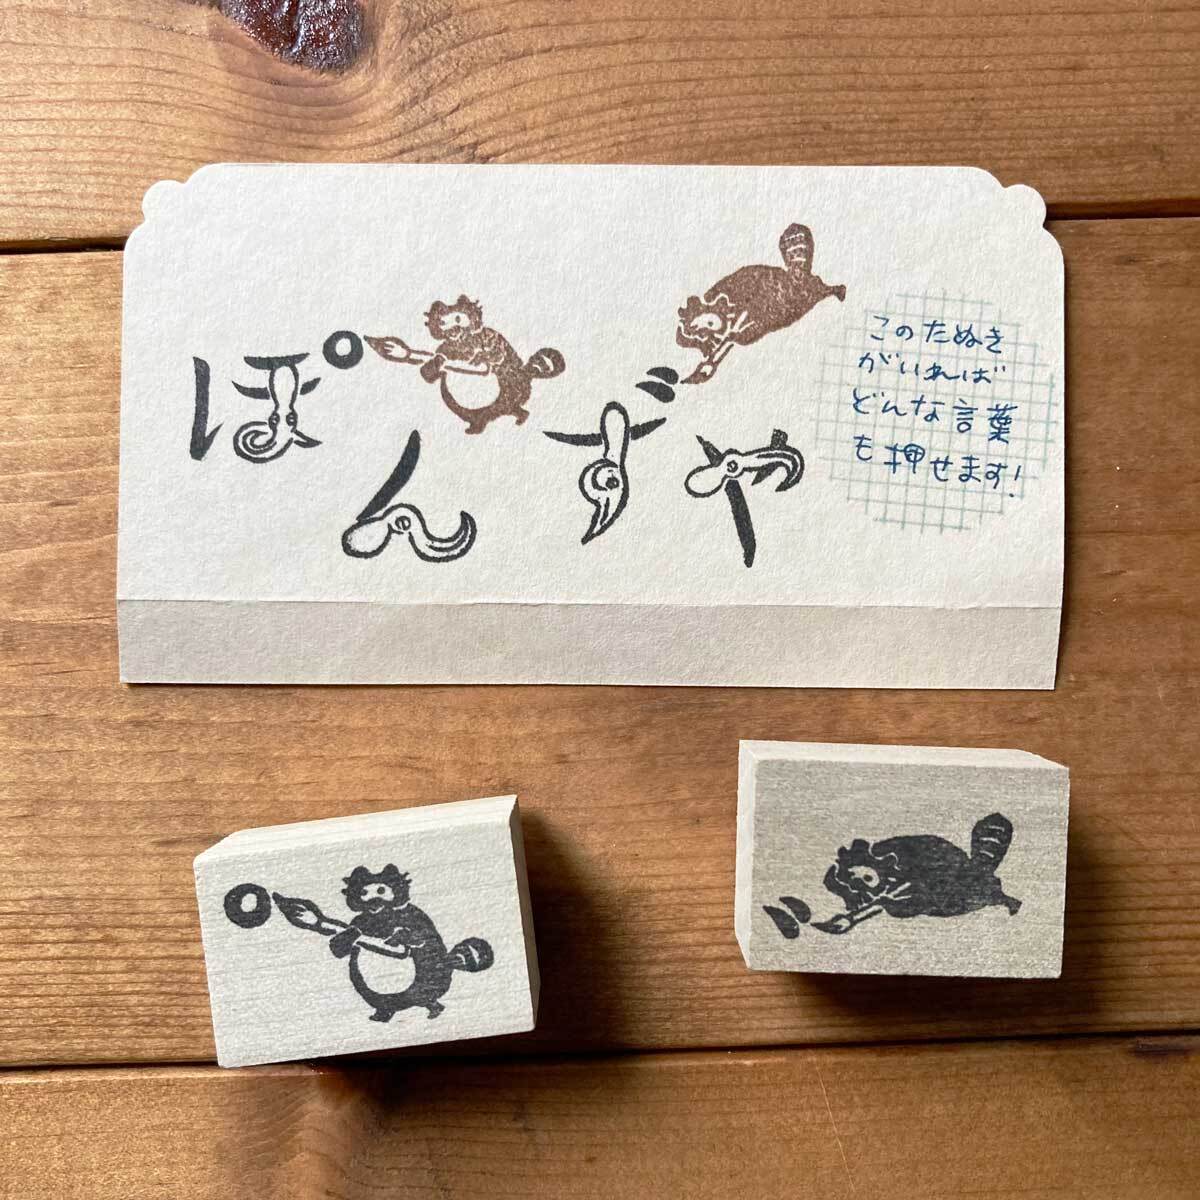 ぽんずや
このたぬき
がいれば
どんな言葉
も押せます!